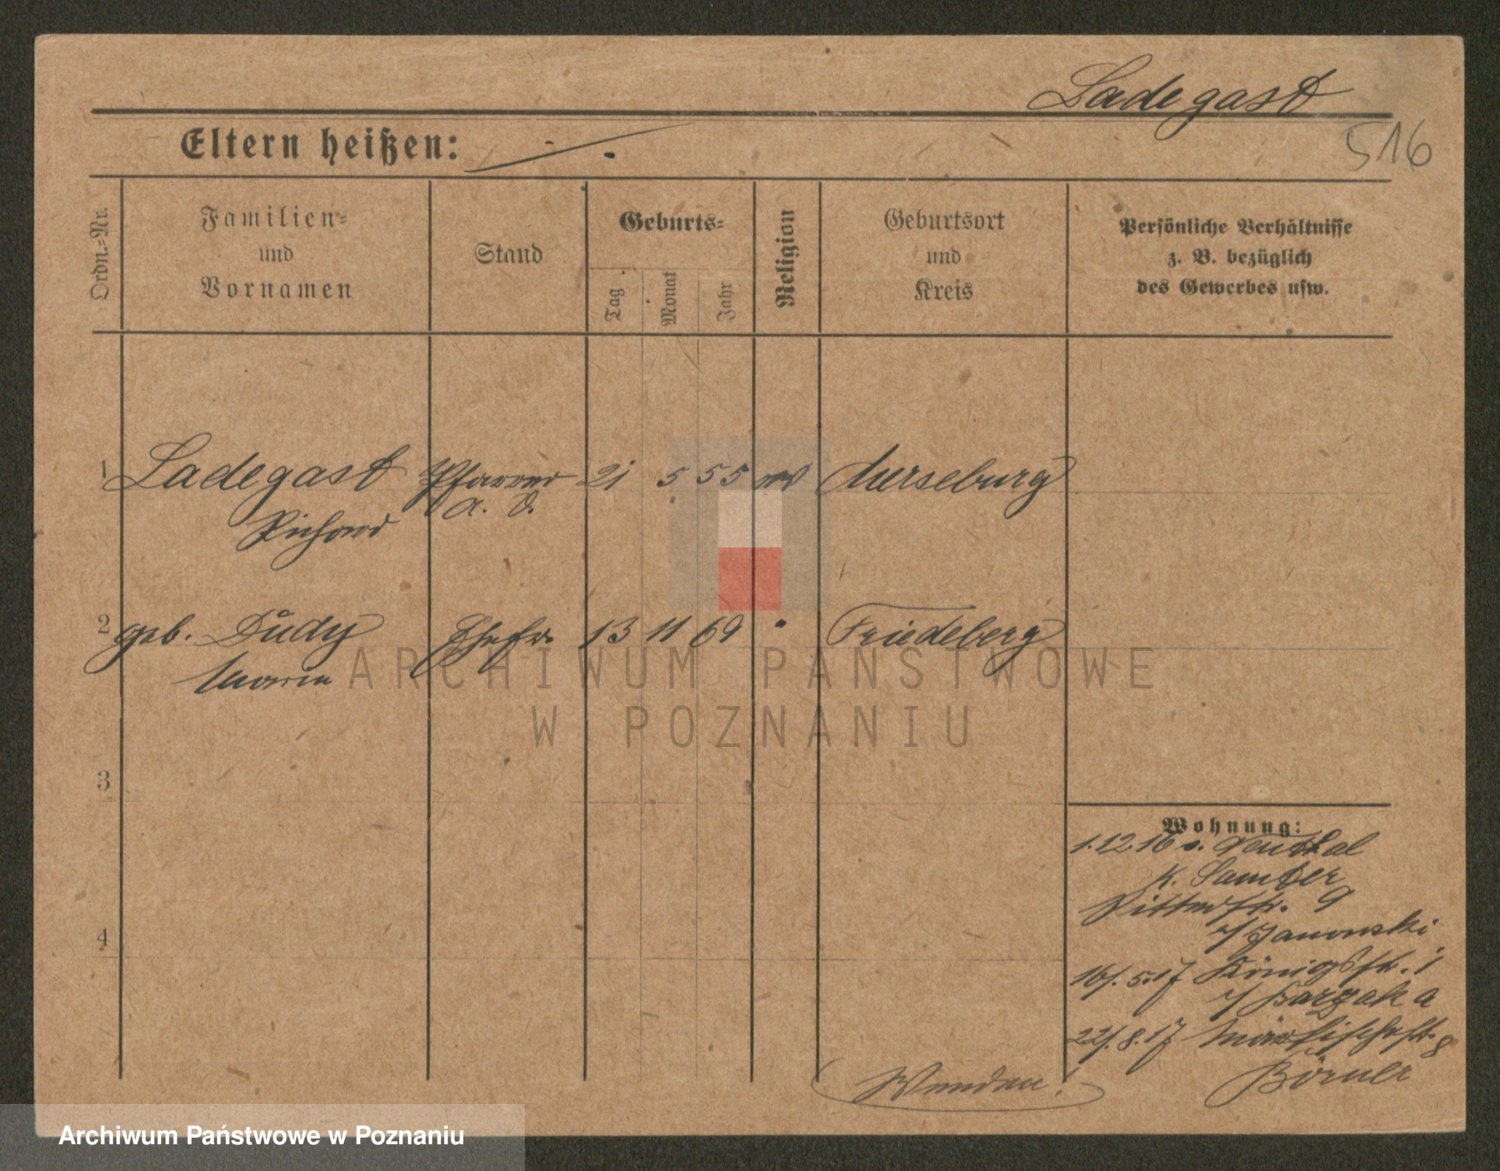 Ladegast
516
Eltern heißen: ./.
Ordn.-Nr.
Familien-
und
Vornamen
Stand
Geburts-
Tag
Monat
Jahr
Religion
Geburtsort
und
Kreis
Persönliche Verhältnisse
z. B. bezüglich
des Gewerbes usw.
1 Ladegast Pfarrer 21 5 55 Merseburg
Richard a. D.
2 geb. Dudy Ehefr. 13 11 69 " Friedeberg
Maria
3
4
Wohnung:
1.12.16
K. Samter
Ritterstr. 9
b/ Janowski
16/.5.17 Königsstr. 1
b/
22/.8.17 Märkischestr. 8
Börner
ARCHIWUM PAŃSTWOWE
W POZNANIU
Archiwum Państwowe w Poznaniu